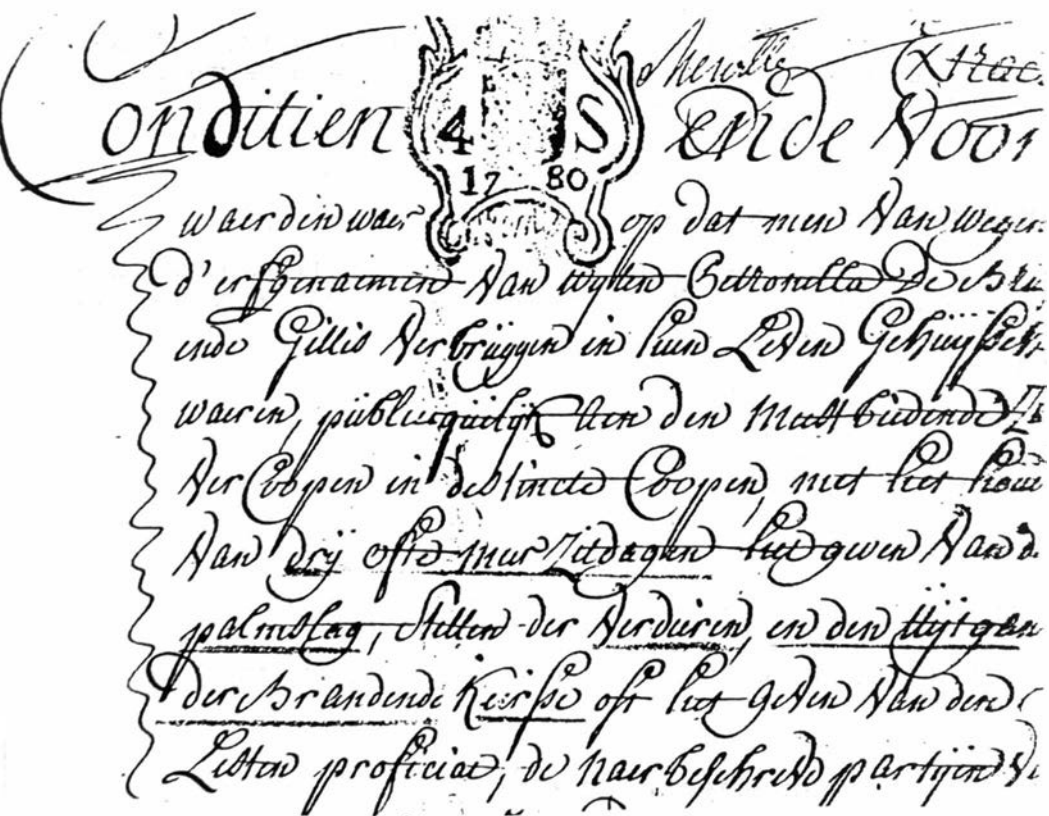 Extrac
Conditien ende Voor
4 S
17 80
waerden waer op dat men van wegen
d'erfgenaemen van wylen Petronilla De Bru
ende Gillis Verbruggen in hun Leven Gehuysschen
waeren, publiequelijk aen den Meest biedende Te
Ver Coopen in destincte Coopen, met het houd
Van drij ofte meer Zitdagen het geven Van d
palmslag, stellen der Verdieren, en den uijtgan
der Brandende Keirsse oft het geven Van den
Lesten proficiat, de naerbeschreve partijen